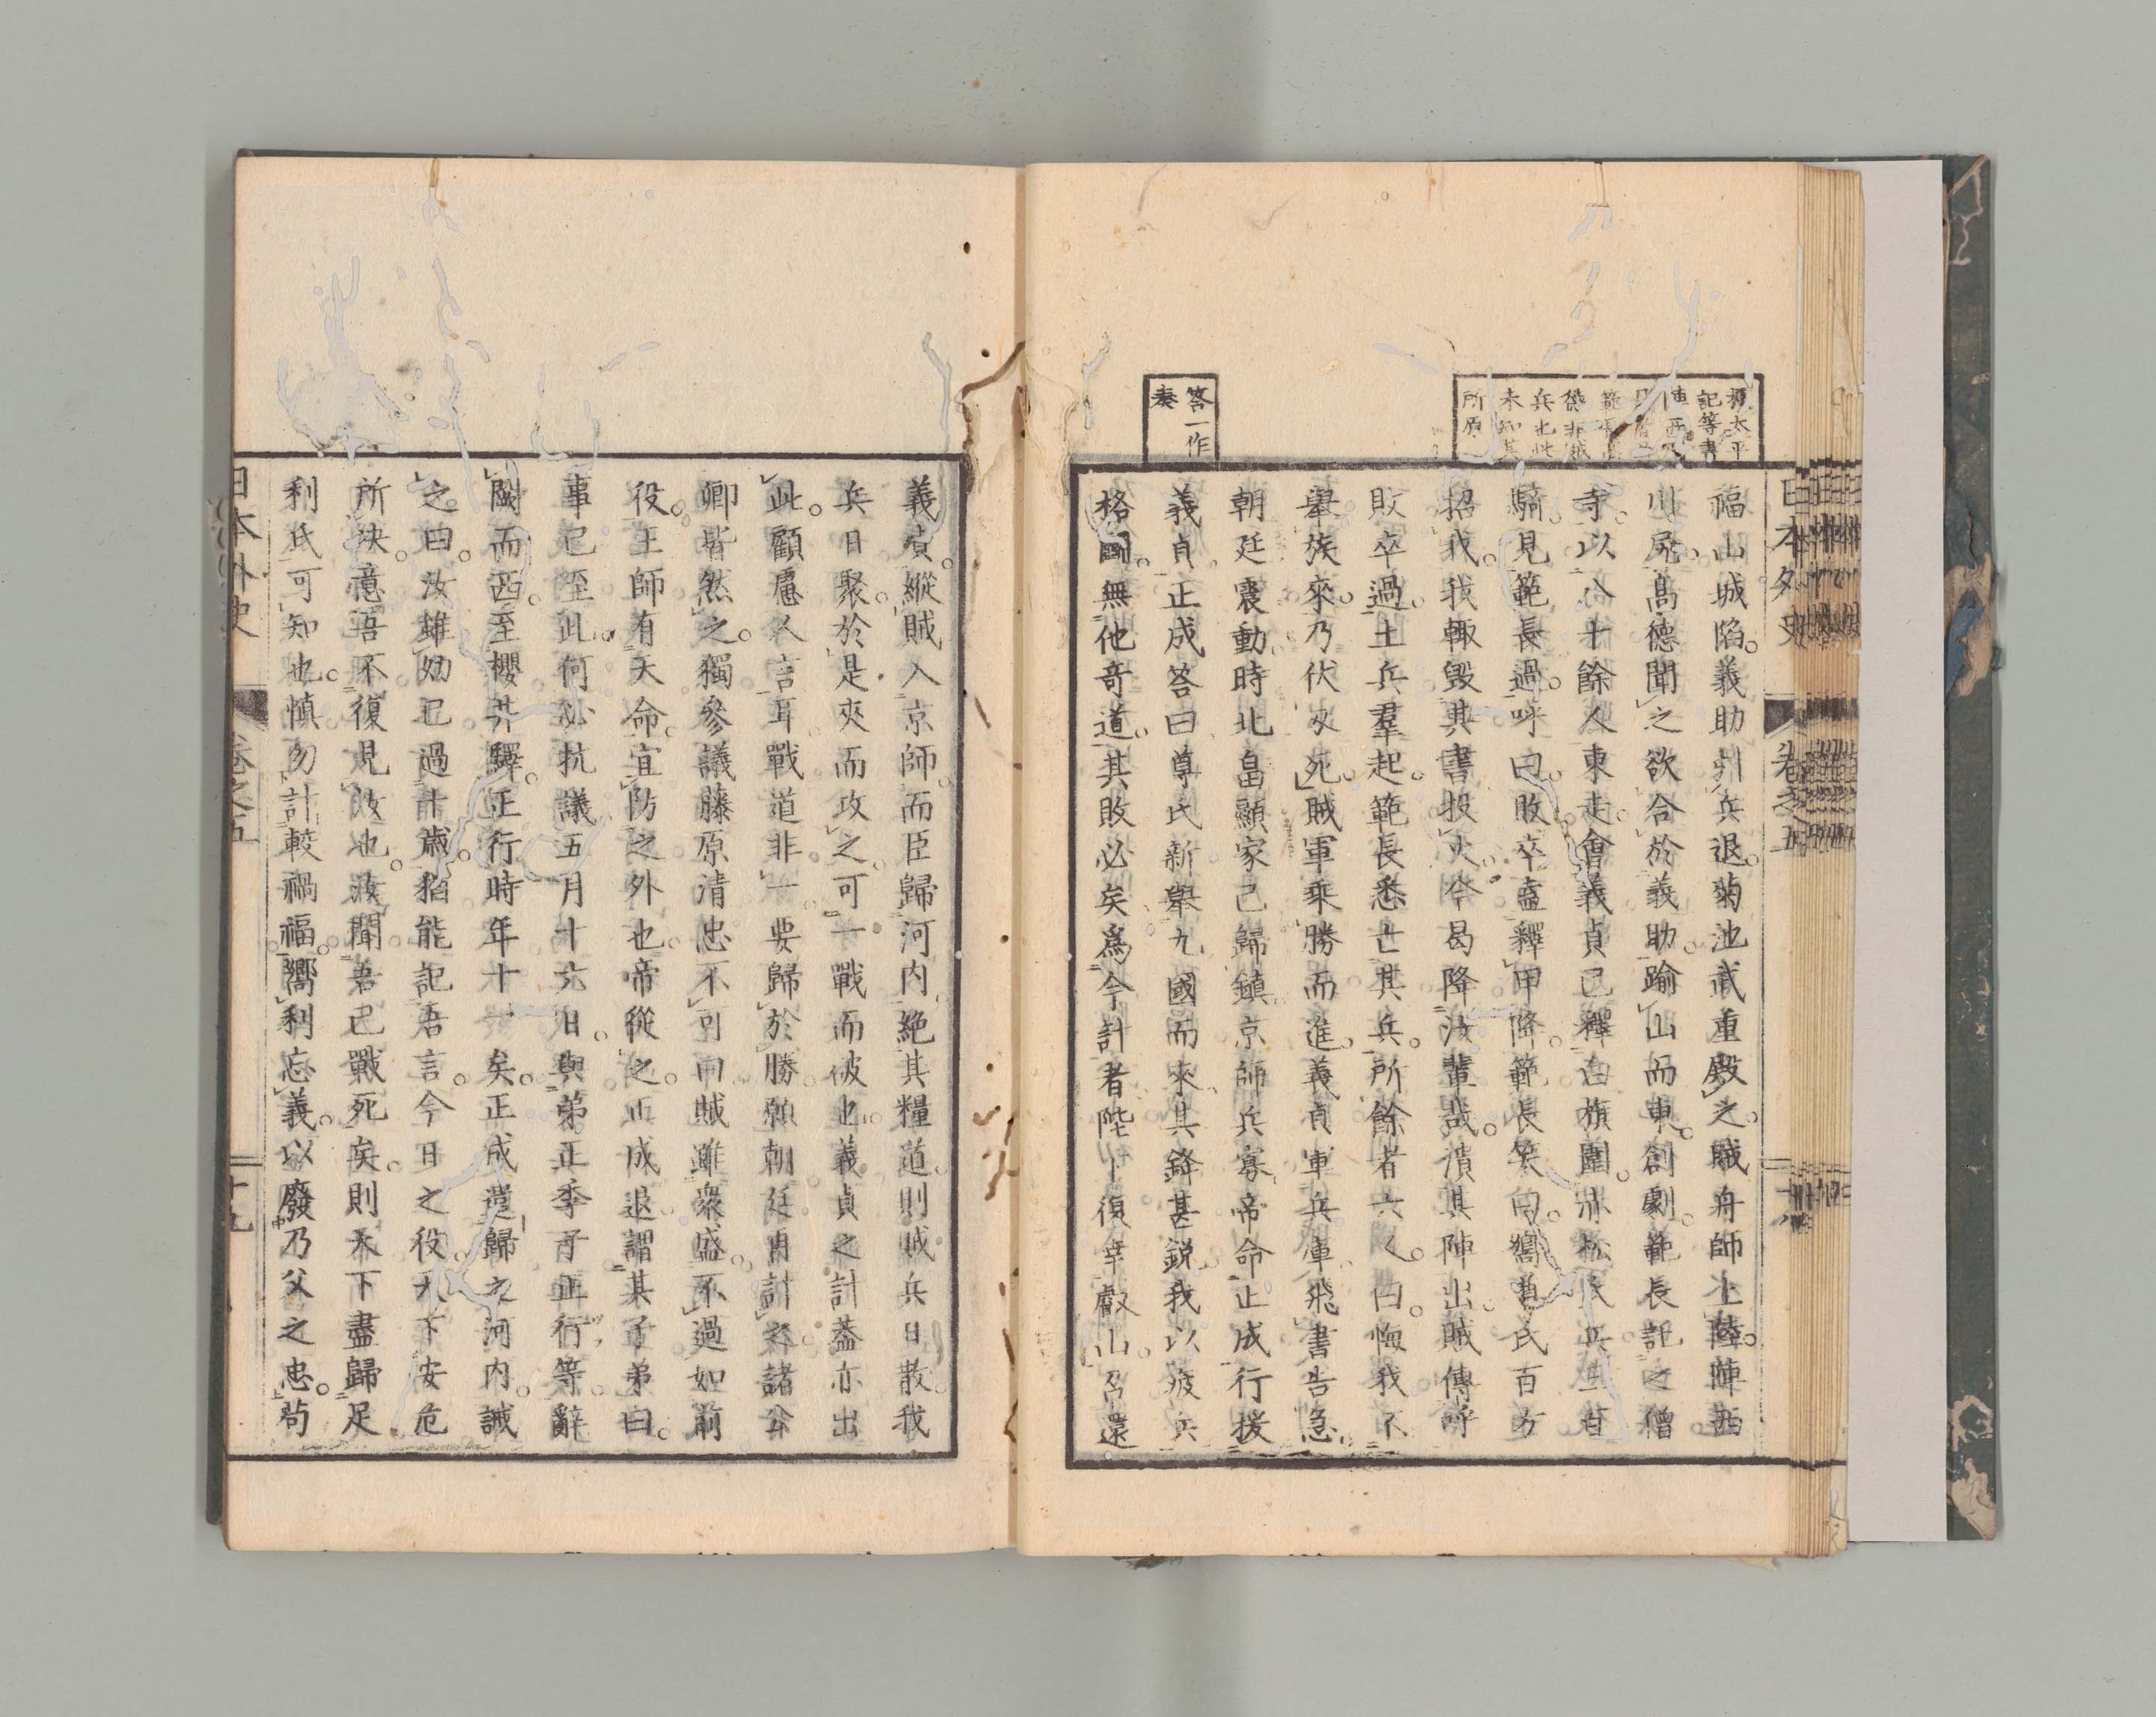 日本外史 卷之五
福山城陷。義助引兵退。菊池武重殿之。賊舟師上陸。陣西
川尻。高德聞之欲合於義助。踰山而東。創劇。範長託之僧
寺。以八十餘人東走。會義貞已釋白旗圍。赤松氏兵三百
騎。見範長過。呼曰。敗卒盍釋甲降。範長笑曰。嚮尊氏百方
招我。我輙毀其書投火。今曷降汝輩哉。潰其陣出。賊傳呼
敗卒過。土兵羣起。範長悉亡其兵。所餘者六人。曰。悔我不
舉族來。乃伏刃死。賊軍乘勝而進。義貞軍兵庫。飛書告急。
朝廷震動。時北畠顯家已歸鎮。京師兵寡。帝命正成行援
義貞。正成答曰。尊氏新舉九國而來。其鋒甚銳。我以疲兵
格鬭。無他奇道。其敗必矣。爲今計者。陛下復幸叡山。召還
記等書
兵也此
未知其
所原
答一作
奏
義貞。縱賊入京師。而臣歸河内。絶其糧道。則賊兵日散。我
兵日聚。於是夾而攻之。可一戰而破也。義貞之計。蓋亦出
此。顧慮人言耳。戰道非一。要歸於勝。願朝廷再計之。諸公
卿皆然之。獨參議藤原清忠不可曰。賊雖衆盛。不過如前
役。王師有天命。宜防之外也。帝從之。正成退謂其子弟曰。
事已至此。何必抗議。五月十六日。與弟正季子正行等。辭
闕而西。至櫻井驛。正行時年十一矣。正成遣歸之河内。誡
之曰。汝雖幼。已過十歲。猶能記吾言。今日之役。天下安危
所決。意吾不復見汝也。汝聞吾已戰死矣。則天下盡歸足
利氏可知也。愼勿計較禍福。嚮利忘義。以廢乃父之忠。苟
日本外史 卷之五 十九